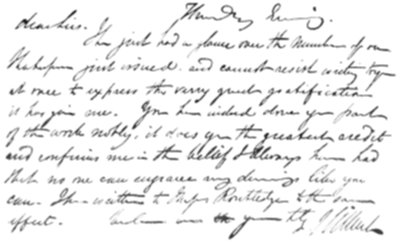 Thursday Evening.
dear Sirs.
I have just had a glance over the number of our
Shakspere just issued. and cannot resist writing to you
at once to express the very great gratification
it has given me. You have indeed done your part
of the work nobly. it does you the greatest credit
and confirms me in the belief I always have had
that no one can engrave my drawings like you
can. I have written to Messrs Routledge to the same
effect. in your J Gilbert